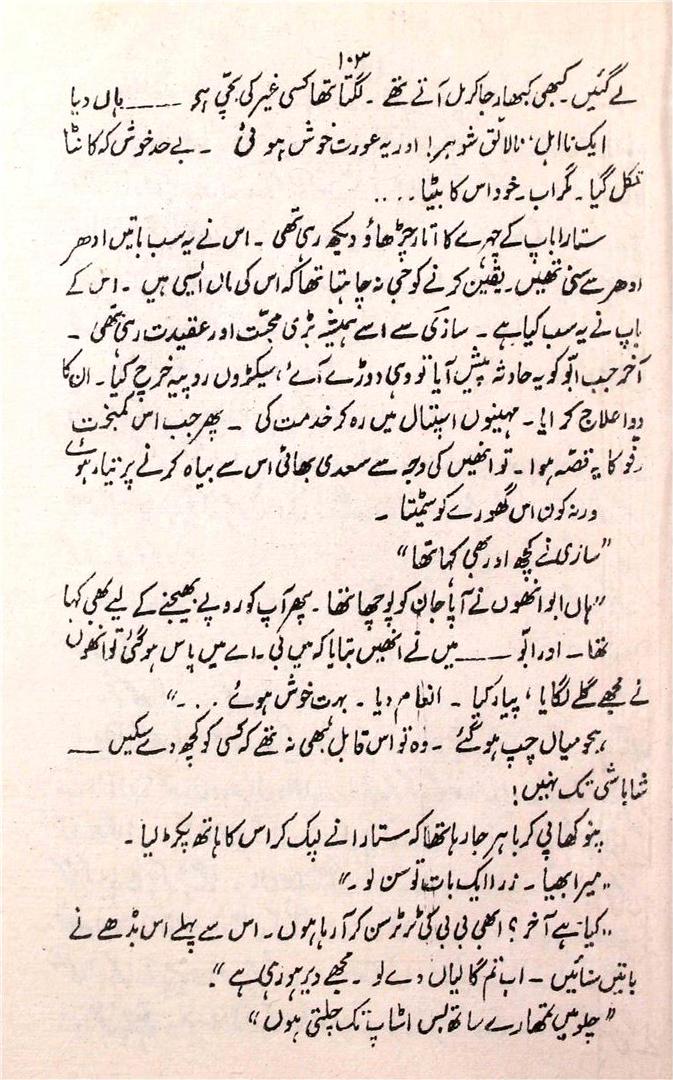 ۱۰۳
لے گئیں۔ کبھی کبھار جا کر مل آتے تھے۔ لگتا تھا کسی غیر کی بچی ہو ـــــ ہاں دیا
ایک نااہل، نالائق شوہر! اور یہ عورت خوش ہوئی ۔ بے حد خوش کہ کانٹا
نکل گیا۔ مگر اب۔ خود اس کا بیٹا . . . .
ستارا باپ کے چہرے کا اتار چڑھاؤ دیکھ رہی تھی۔ اس نے یہ سب باتیں ادھر
ادھر سے سنی تھیں۔ یقین کرنے کو جی نہ چاہتا تھا کہ اس کی ماں ایسی ہیں ۔ اس کے
باپ نے یہ سب کیا ہے ۔ سازی سے اسے ہمیشہ بڑی محبّت اور عقیدت رہی تھی ۔
آخر جب ابّو کو یہ حادثہ پیش آیا تو وہی دوڑے آئے، سیکڑوں روپیہ خرچ کیا۔ ان کا
دوا علاج کرایا۔ مہینوں اسپتال میں رہ کر خدمت کی ۔ پھر جب اس کمبخت
رفو کا یہ قصّہ ہوا۔ تو انھیں کی وجہ سے سعدی بھائی اس سے بیاہ کرنے پر تیار ہوئے
ورنہ کون اس گھورے کو سمیٹتا ۔
”سازی نے کچھ اور بھی کہا تھا“
”ہاں ابو انھوں نے آپا جان کو پوچھا تھا۔ پھر آپ کو روپے بھیجنے کے لیے بھی کہا
تھا۔ اور ابّو ـــــ میں نے انھیں بتایا کہ میں بی۔ اے میں پاس ہو گئی تو انھوں
نے مجھے گلے لگایا، پیار کیا ۔ انعام دیا ۔ بہت خوش ہوئے . . .“
بجو میاں چپ ہو گئے ۔ وہ تو اس قابل بھی نہ تھے کہ کسی کو کچھ دے سکیں ـــ
شاباشی تک نہیں!
پنو کھا پی کر باہر جا رہا تھا کہ ستارا نے لپک کر اس کا ہاتھ پکڑ لیا۔
”میرا بھیا ۔ ذرا ایک بات تو سن لو۔“
”کیا ہے آخر؟ ابھی بی بی کی ٹرٹر سن کر آ رہا ہوں۔ اس سے پہلے اس بڈھے نے
باتیں سنائیں ۔ اب تم گالیاں دے لو ۔ مجھے دیر ہو رہی ہے“۔
”چلو میں تمھارے ساتھ بس اسٹاپ تک چلتی ہوں“